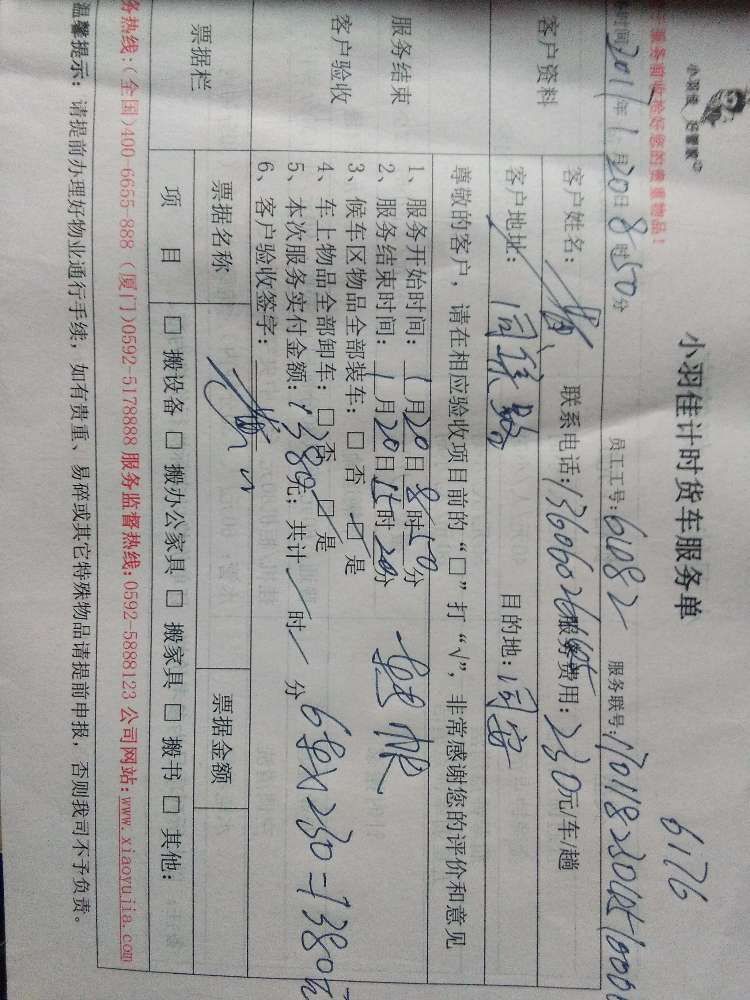 小羽佳 好管家
小羽佳计时货车服务单
6176
2011年1月20日8时50分
员工工号：61082
服务联号：
客户资料
客户姓名：
联系电话：
服务费用：230元/车/趟
客户地址：同集路
目的地：同安
服务结束
客户验收
尊敬的客户，请在相应验收项目前的“□”打“√”，非常感谢您的评价和意见
1、服务开始时间：1月20日8时50分
2、服务结束时间：1月20日15时20分
3、候车区物品全部装车：□ 否 □ 是
4、车上物品全部卸车：□ 否 □ 是
5、本次服务实付金额：1380元；共计 时 分
6、客户验收签字：
6趟×230=1380元
票据栏
票据名称
票据金额
项 目
□ 搬设备 □ 搬办公家具 □ 搬家具 □ 搬书 □ 其他：
务热线：（全国）400-6655-888（厦门）0592-5178888 服务监督热线：0592-5888123 公司网站：www.xiaoyujia.com
温馨提示：请提前办理好物业通行手续，如有贵重、易碎或其它特殊物品请提前申报，否则我司不予负责。